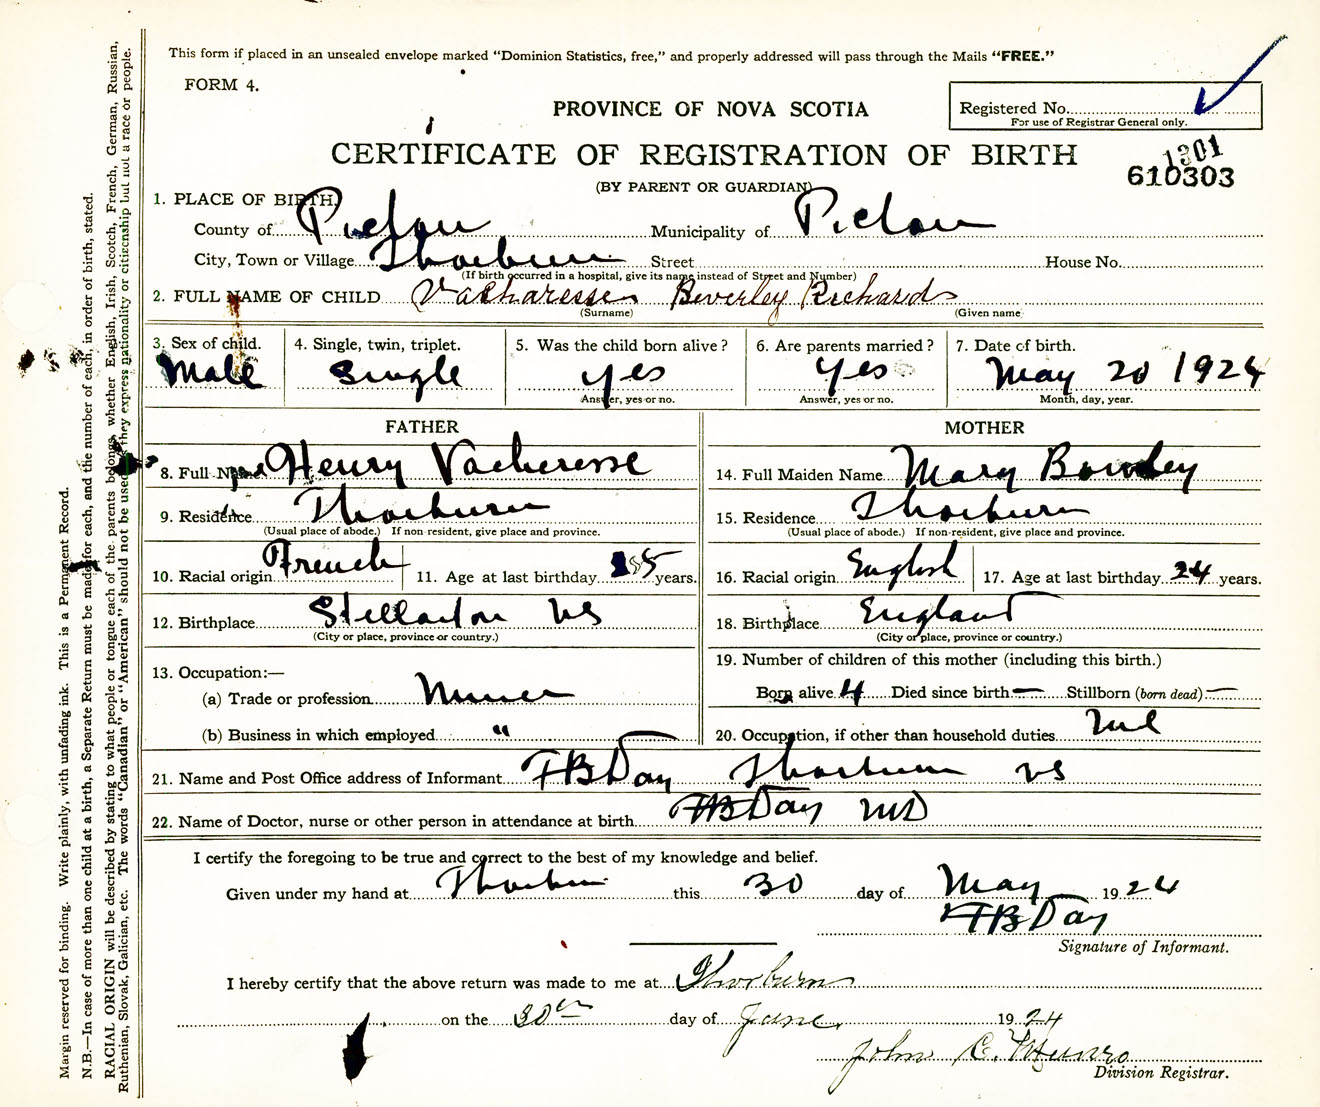 This form if placed in an unsealed envelope marked "Dominion Statistics, free," and properly addressed will pass through the Mails "FREE."
FORM 4.
PROVINCE OF NOVA SCOTIA
Registered No.
For use of Registrar General only.
CERTIFICATE OF REGISTRATION OF BIRTH
1301
610303
(BY PARENT OR GUARDIAN)
1. PLACE OF BIRTH.
County of Pictou Municipality of Pictou
City, Town or Village Thorburn Street House No.
(If birth occurred in a hospital, give its name instead of Street and Number)
2. FULL NAME OF CHILD Vacharesse Beverley Richards
(Surname) (Given name)
3. Sex of child. 4. Single, twin, triplet. 5. Was the child born alive? 6. Are parents married? 7. Date of birth.
Male Single yes yes May 20 1924
Answer, yes or no. Answer, yes or no. Month, day, year.
FATHER MOTHER
8. Full Name Henry Vacheresse 14. Full Maiden Name Mary Bowley
9. Residence Thorburn 15. Residence Thorburn
(Usual place of abode.) If non-resident, give place and province. (Usual place of abode.) If non-resident, give place and province.
10. Racial origin French 11. Age at last birthday years. 16. Racial origin English 17. Age at last birthday 24 years.
12. Birthplace Stellarton NS 18. Birthplace England
(City or place, province or country.) (City or place, province or country.)
13. Occupation:— 19. Number of children of this mother (including this birth.)
(a) Trade or profession Miner Born alive 4 Died since birth — Stillborn (born dead) —
(b) Business in which employed " 20. Occupation, if other than household duties nil
21. Name and Post Office address of Informant FB Day Thorburn NS
22. Name of Doctor, nurse or other person in attendance at birth FB Day MD
I certify the foregoing to be true and correct to the best of my knowledge and belief.
Given under my hand at Thorburn this 30 day of May 1924
FB Day
Signature of Informant.
I hereby certify that the above return was made to me at Thorburn
on the 30th day of June 1924
John C. Munro
Division Registrar.
Margin reserved for binding. Write plainly, with unfading ink. This is a Permanent Record.
N.B.—In case of more than one child at a birth, a Separate Return must be made for each, and the number of each, in order of birth, stated.
RACIAL ORIGIN will be described by stating to what people or tongue each of the parents belongs, whether English, Irish, Scotch, French, German, Russian,
Ruthenian, Slovak, Galician, etc. The words "Canadian" or "American" should not be used as they express nationality or citizenship but not a race or people.